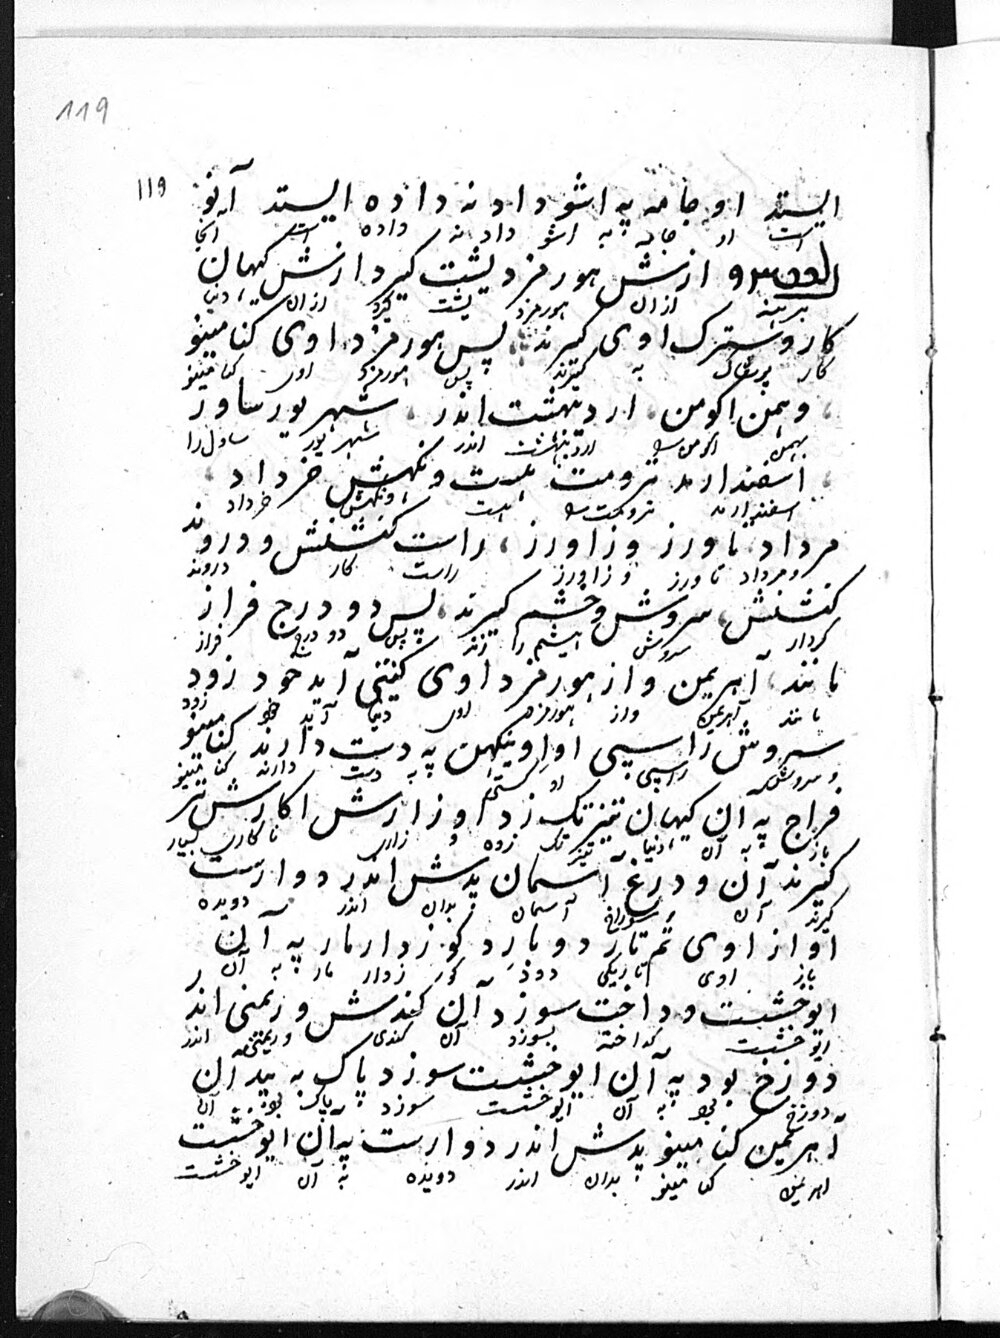 119
١١٩
ایستد او جامه په اشو داد نه داده ایستد آنو
است او جامه به اشو داد نه داده است آنجا
و ازش هورمزد یشت گیرد ازش کیهان
برهنه ازان هورمزد یشت گیرد ازان دنیا
کار و سترک اوی گیرند پس هورمزد اوی کنامینو
کار بزرگ به گیرند پس هورمزد اوی کنا مینو
وهمن اکومن، اردیبهشت اندر، شهریور ساور
بهمن اکومن اردیبهشت اندر شهریور ساول را
اسفندارمد ترومت هست ونگهتش خرداد
اسفندارمد ترومت هست ونگهش خرداد
مرداد تاورز وزاورز، راست کنشنش و دروند
و مرداد تاورز و زاورز راست کار دروند
کنشنش، سروش و خشم گیرند، پس دو درج فراز
کردار سروش هیشم را زنند پس دو درج فراز
مانند، آهریمن و از هورمزد اوی گیتی آید خود زود
مانند آهریمن واز هورمزد اوی دنیا آید خود زود
سروش راسپی او اونگهن په دست دارند کنامینو
و سروش راسپی او کستی به دست دارند کنا مینو
فراج په آن کیهان تیزتک زد او زارش اکارش تر
باز به آن دنیا تیزتک زده و زاری ناکاری بسیار
گیرند آن ودرغ آسمان پدش اندر دوارست
گیرند آن سوراخ آسمان بدان اندر دویده
او از اوی تم تار دوبارد گوزدار مار په آن
باز اوی تاریکی دود گوزدار مار به آن
ایوخشست وداخت سوزد آن گندش و ریمنی اندر
ایوخشست گداخته بسوزد آن گندی و ریمنی اندر
دوزخ بود په آن ایوخشست سوزد پاک به بید آن
دوزخ بود به آن ایوخشست سوزد پاک بود آن
آهریمن کنامینو پدش اندر دوارست په آن ایوخشست
اهریمن کنا مینو بدان اندر دویده به آن ایوخشست